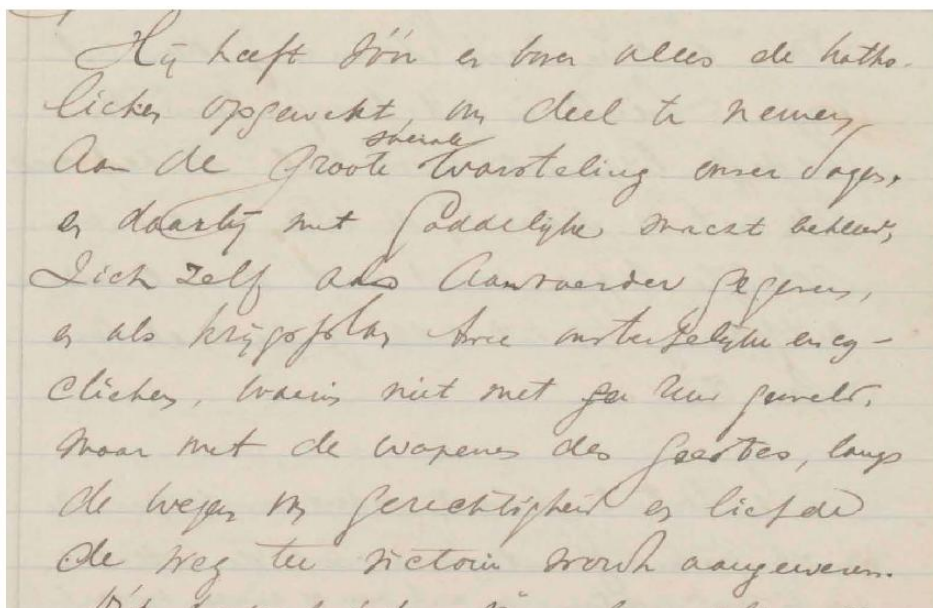 Hij heeft vóór en boven alles de katho-
lieken opgewekt, om deel te nemen
aan de groote sociale worsteling onzer dagen,
en daarbij met Goddelijke macht bekleed,
Zich zelf als aanvoerder gegeven,
en als krijgsplan twee onsterfelijke ency-
clieken, waarin niet met ruw geweld,
maar met de wapenen des geestes, langs
de wegen van gerechtigheid en liefde
de weg ter victorie wordt aangewezen.